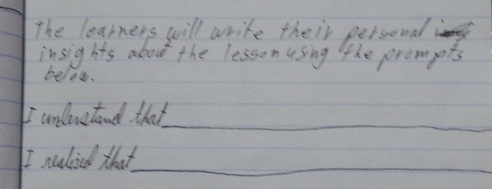 The learners will write their personal
insights about the lesson using the prompts
below.
I understand that
I realized that